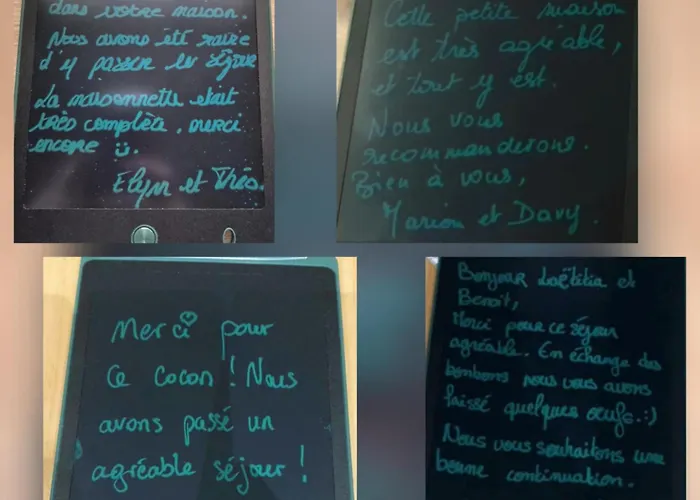 dans votre maison.
Nous avons été ravie
d'y passer le séjour
La maisonnette etait
très complète, merci
encore :)
Elyn et Théo.
Cette petite maison
est très agréable,
et tout y est.
Nous vous
recommanderons.
Bien à vous,
Marion et Davy.
Merci pour
ce cocon ! Nous
avons passé un
agréable séjour !
Bonjour Laëtitia et
Benoit,
Merci pour ce séjour
agréable. En échange des
bonbons nous vous avons
laissé quelques oeufs. :)
Nous vous souhaitons une
bonne continuation.